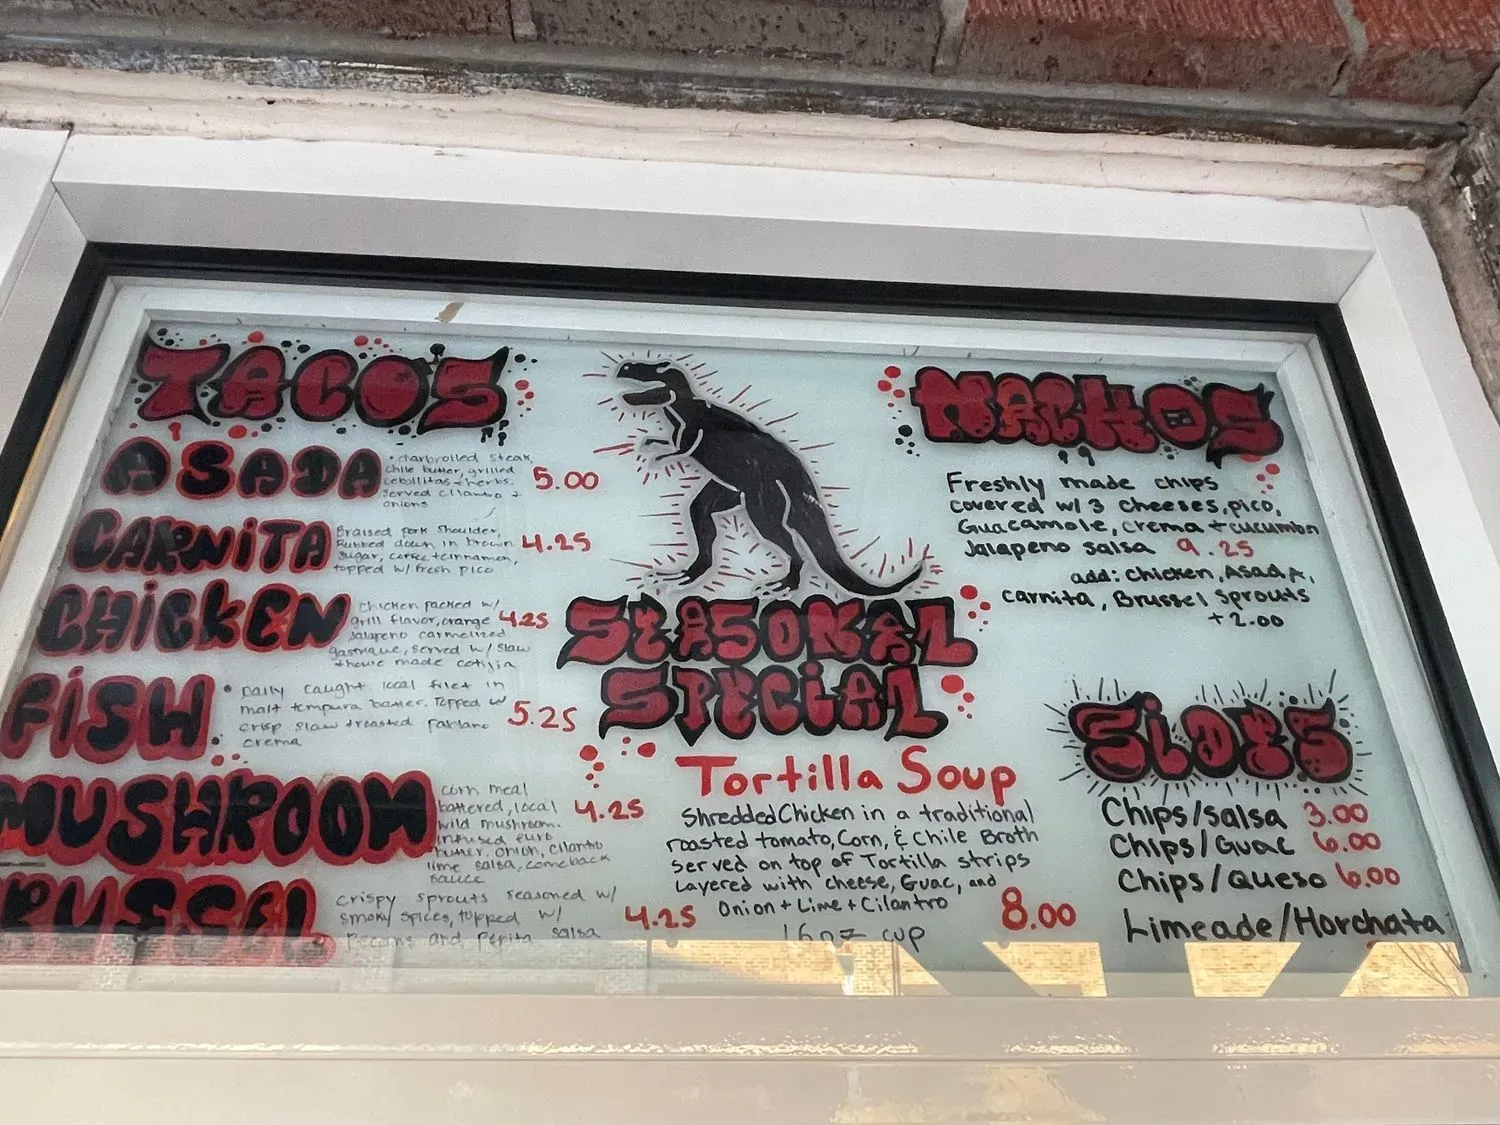 TACOS
ASADA
• charbroiled steak,
chile butter, grilled
cebollitas + herbs.
Served cilantro +
onions
5.00
CARNiTA
Braised pork shoulder,
Rubbed down in brown
sugar, coffee + cinnamon,
topped w/ fresh pico
4.25
CHiCKEN
chicken packed w/
grill flavor, orange
Jalapeno carmelized
gastrique, served w/ slaw
+ house made cotijia
4.25
FiSH
• Daily caught local filet in
malt tempura batter. Topped w/
crisp slaw + roasted poblano
crema
5.25
MUSHROOM
corn meal
battered, local
wild mushroom.
infused
butter, onion, cilantro
lime salsa, comeback
sauce
4.25
BRUSSEL
crispy sprouts seasoned w/
smoky spices, topped w/
pecans and pepita salsa
4.25
SEASONAL
SPECiAL
Tortilla Soup
Shredded Chicken in a traditional
roasted tomato, Corn, & Chile Broth
Served on top of Tortilla strips
Layered with cheese, Guac, and
Onion + Lime + Cilantro
16oz cup
8.00
NACHOS
Freshly made chips
covered w/ 3 cheeses, pico,
Guacamole, crema + cucumbn
Jalapeno salsa 9.25
add: chicken, Asada,
carnita, Brussel sprouts
+2.00
SiDES
Chips/salsa 3.00
Chips/Guac 6.00
Chips/Queso 6.00
Limeade/Horchata